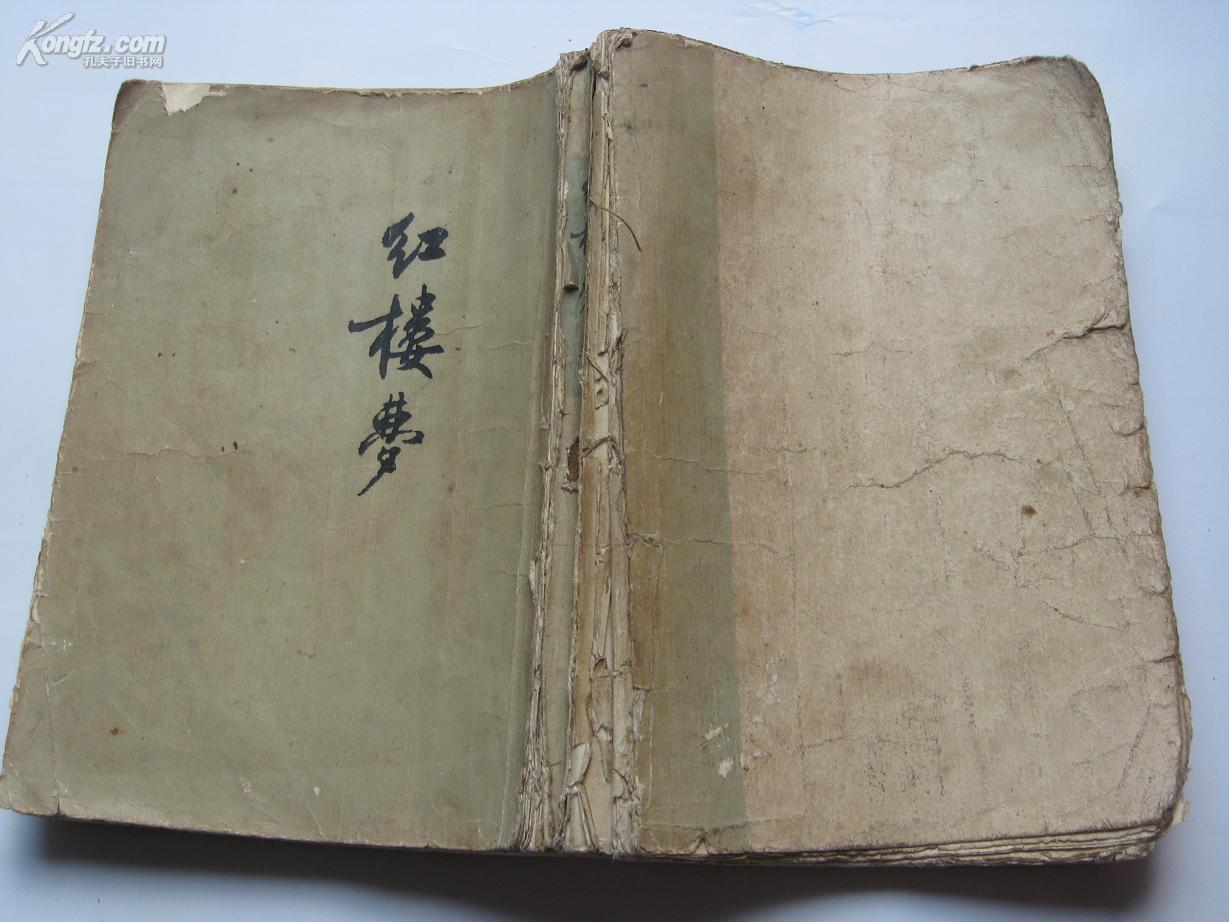 Kongfz.com
孔夫子旧书网
红楼梦